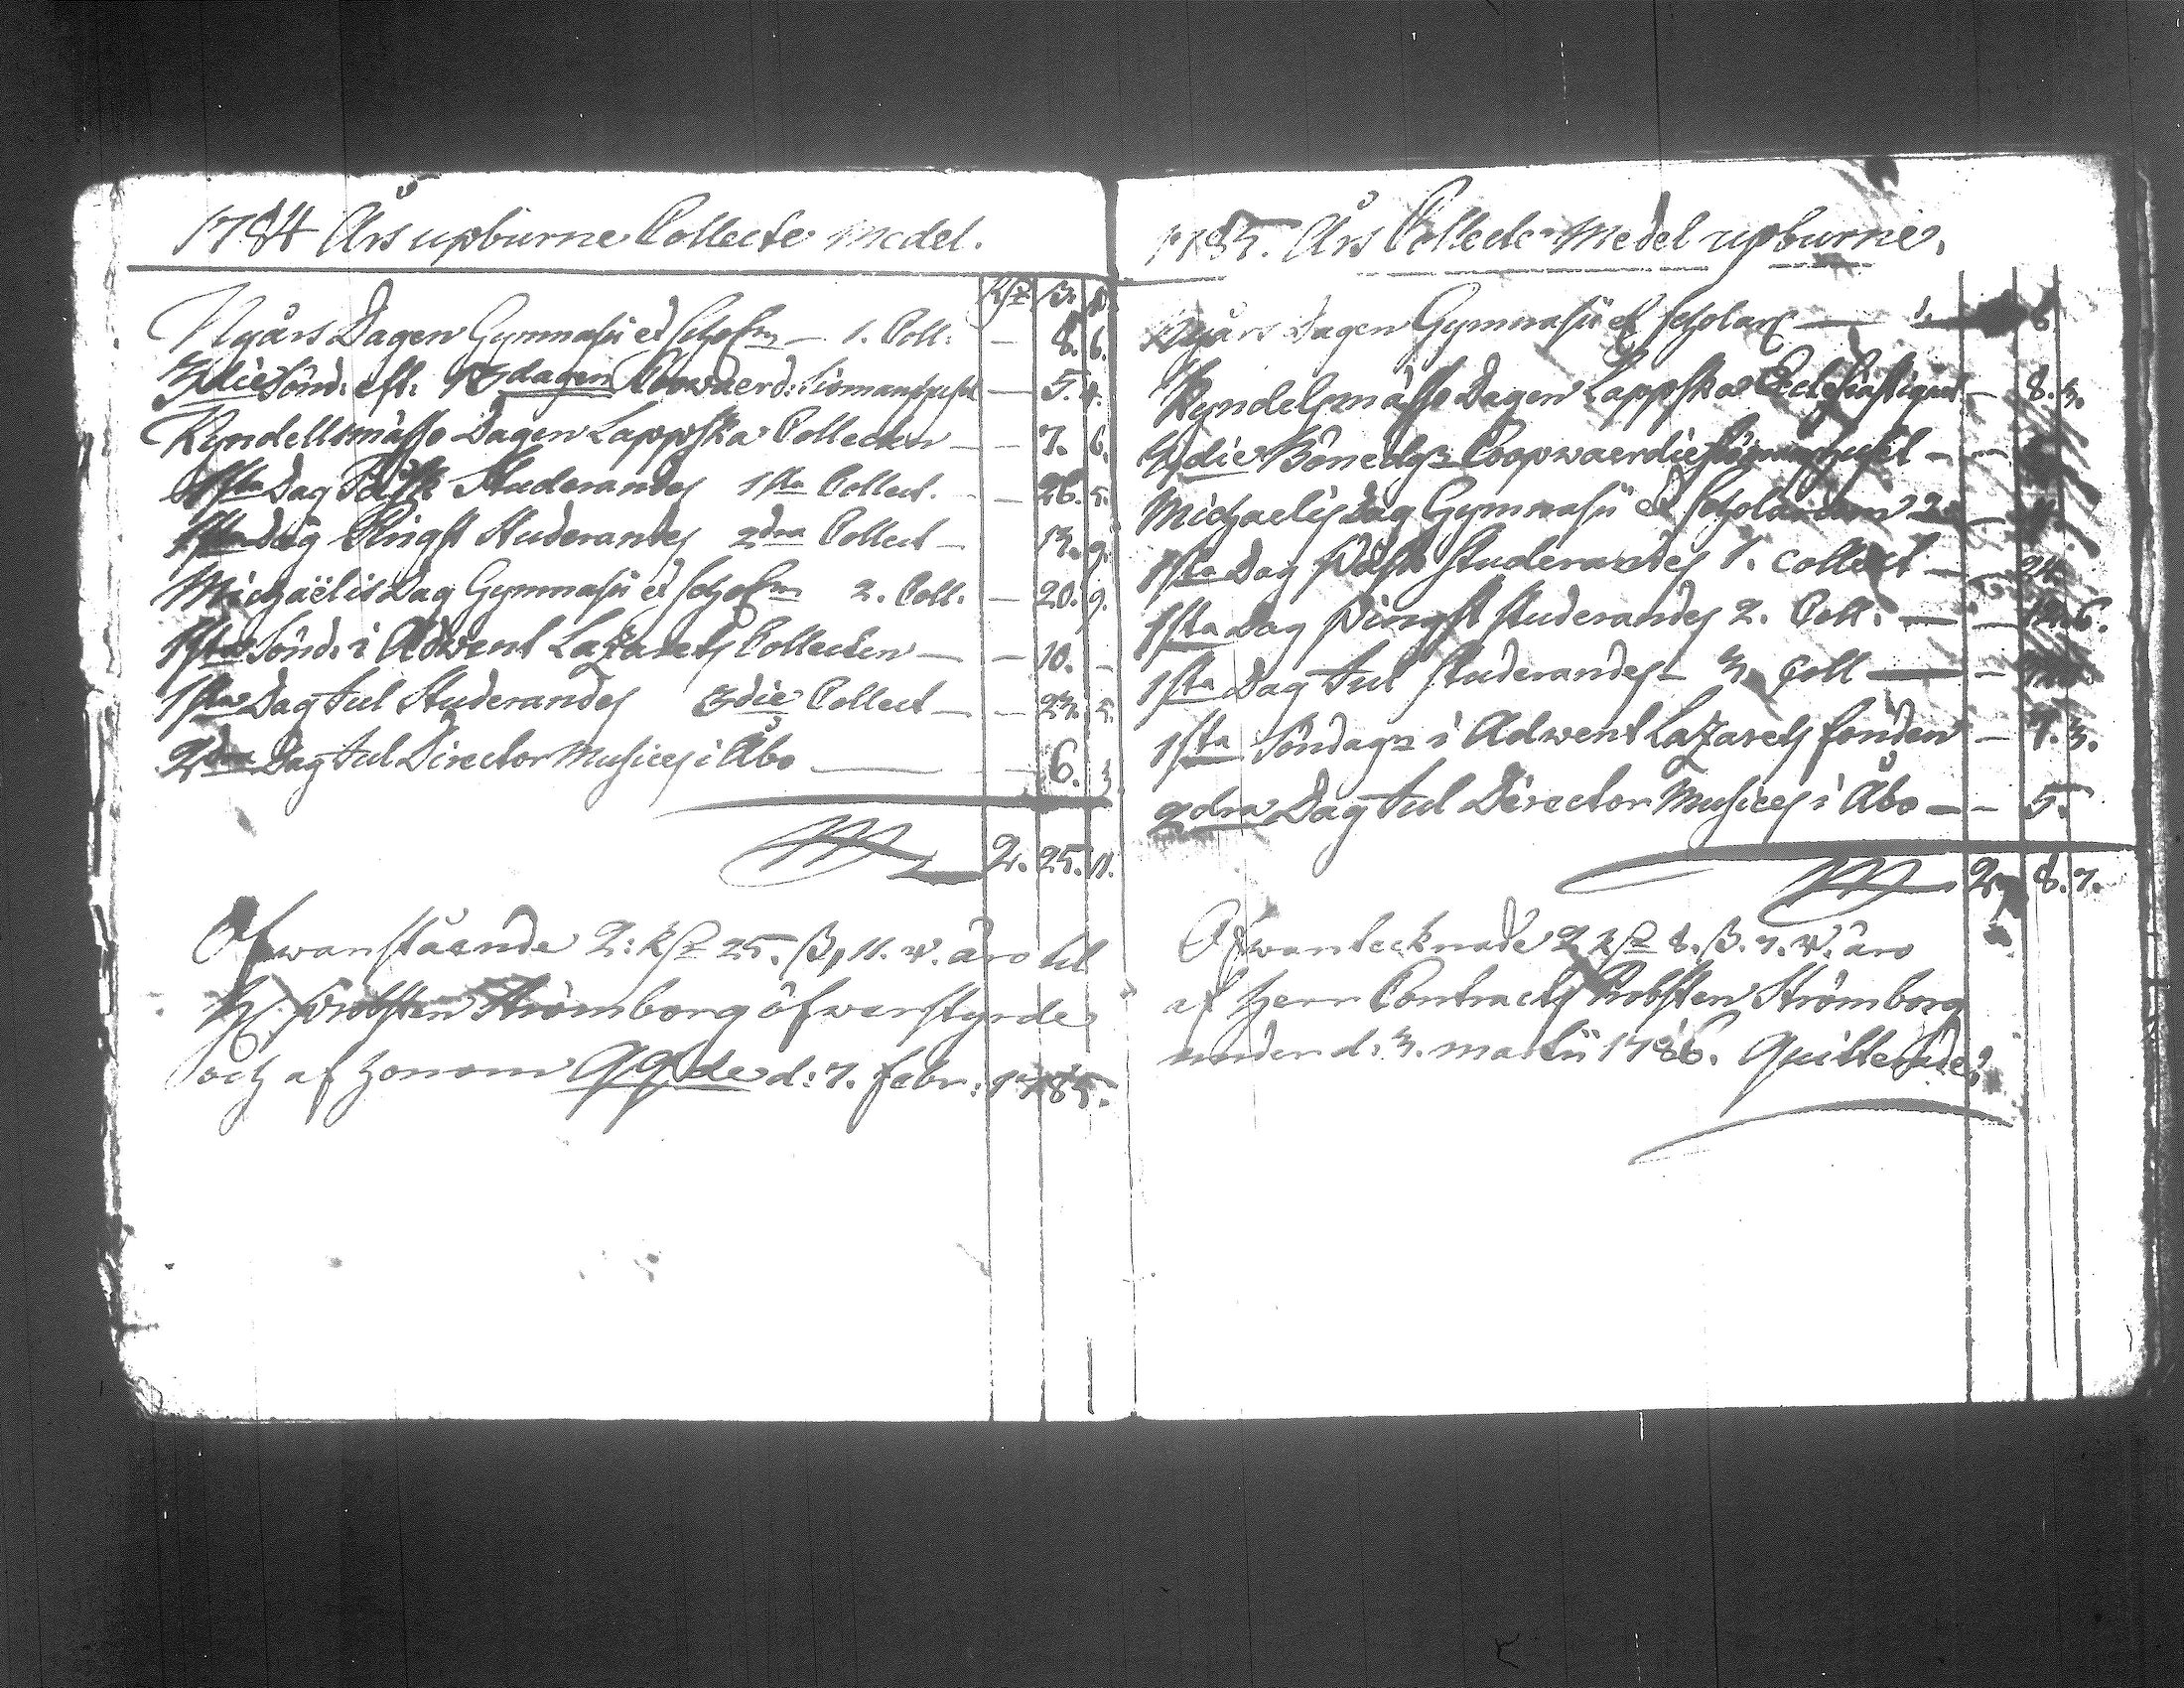 1784 Års upburne Collecte medel.
Rdr ß. d.
Nyårs Dagen Gymnasii et Scholm — 1. Coll. — 8. 6.
3die Sönd. eft. 13 dagen Coopwaerd: — 5. 4.
Kyndellsmässo Dagen Lappska Collecten — — 7. 6.
1sta Dag Påsk Studerandes 1sta Collect. — 26. 5.
1sta Dag Pingst Studerandes 2dra Collect — 13. 9.
Michaëlis Dag Gymnasii et Scholm 2. Coll. — 20. 9.
1sta Sönd. i Adwent Lazarets Collecten — — 10. —
1sta Dag Jul Studerandes 3die Collect — — 23. 5.
2dra Dag Jul Director Musices i Åbo — — 6. 3
2. 25. 11.
Ofwanstående 2: Rdr 25. ß, 11. d. äro til
H. Probsten Strömborg öfwerstyrde
och af honom qq:de d: 7. Febr: 1785.
1785. Års Collecte Medel upburne.
Nyårs Dagen Gymnasii et Scholar — 1. — 8.
Kyndelsmässo Dagen Lappska — 8. 3.
3die Bönedgn Coopwaerdie — —
Michaelis Dag Gymnasii et Scholarum 2 —
1sta Dag Påsk Studerandes 1. Collect — 24.
1sta Dag Pingst Studerandes 2. Coll. — — 6.
1sta Dag Jul Studerandes 3. Coll — —
1sta Söndagn i Adwent Lazarets fonden — 7. 3.
2dra Dag Jul Director Musices i Åbo — — 5.
2. 8. 7.
Ofwantecknade 2 Rdr 8. ß. 7. d. äro
af Herr Contracts Probsten Strömborg
under d: 3. martii 1786. Quitterade.